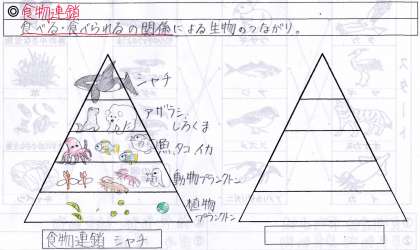 ◎食物連鎖
食べる・食べられるの関係による生物のつながり。
シャチ
アザラシ、
しろくま
魚、タコ イカ
動物プランクトン
植物
プランクトン
食物連鎖 シャチ